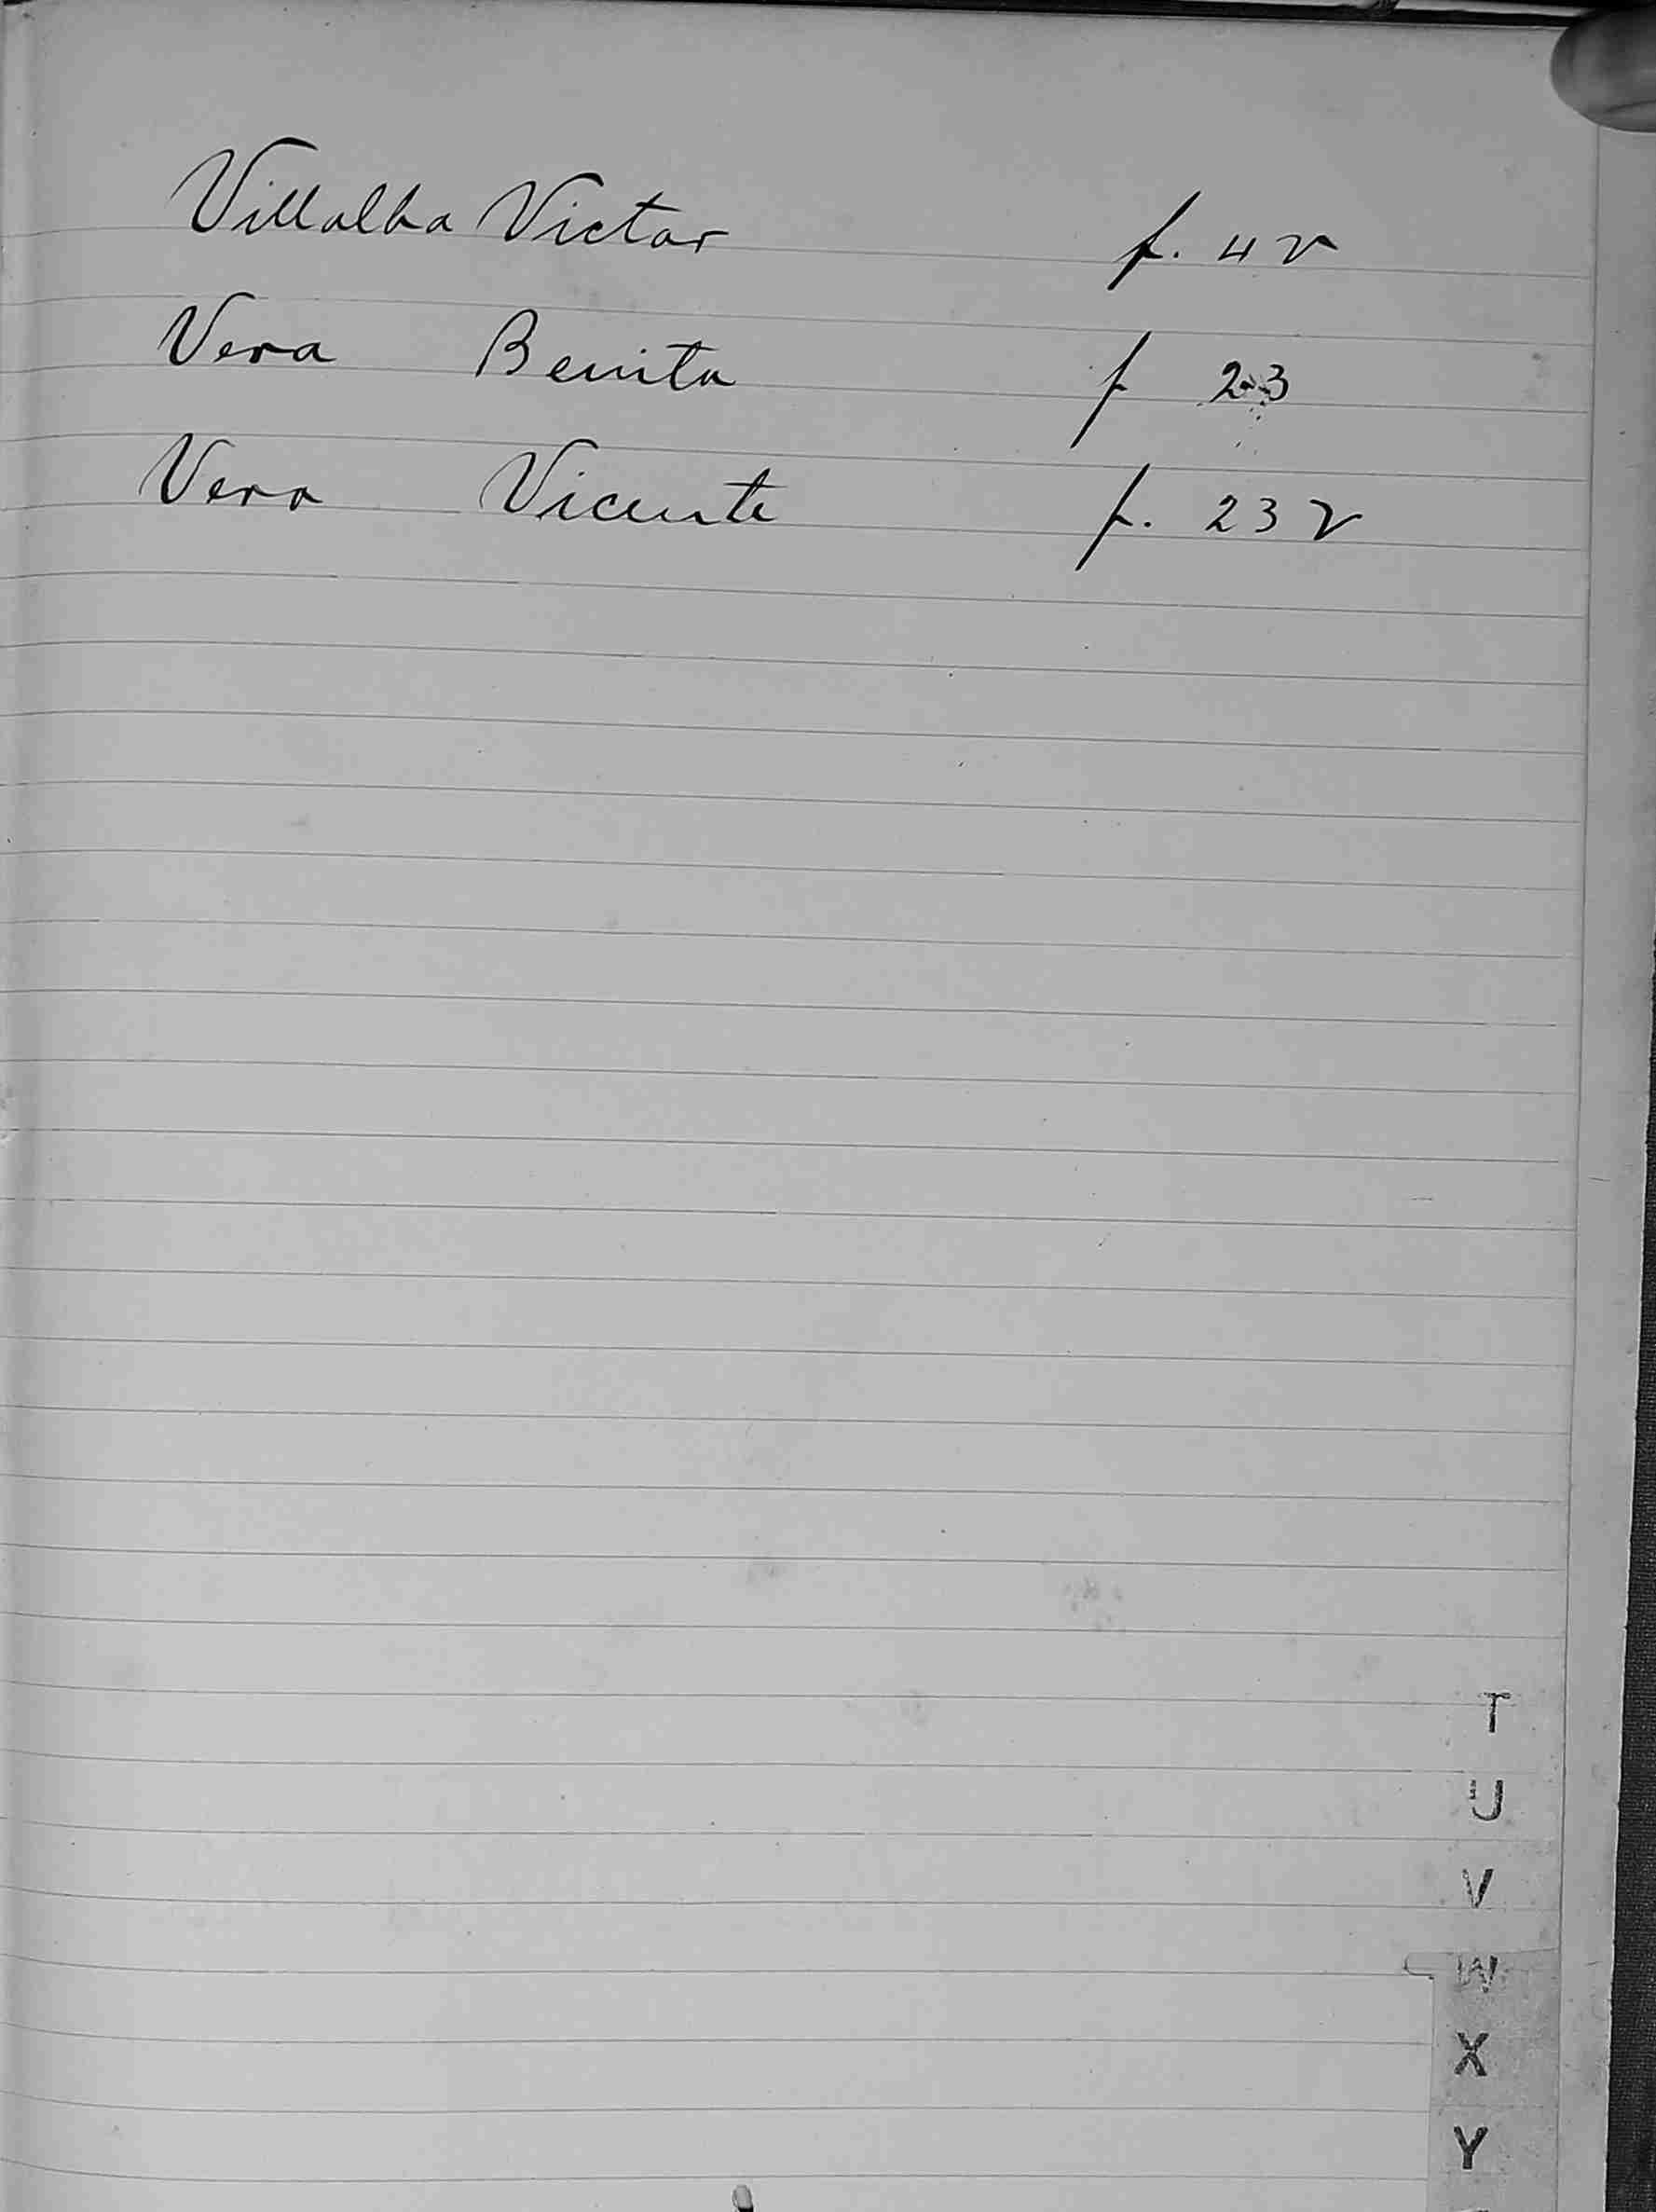 Villalba Victor f. 4 v
Vera Benita f 23
Vera Vicente f. 23 v
T
U
V
W
X
Y